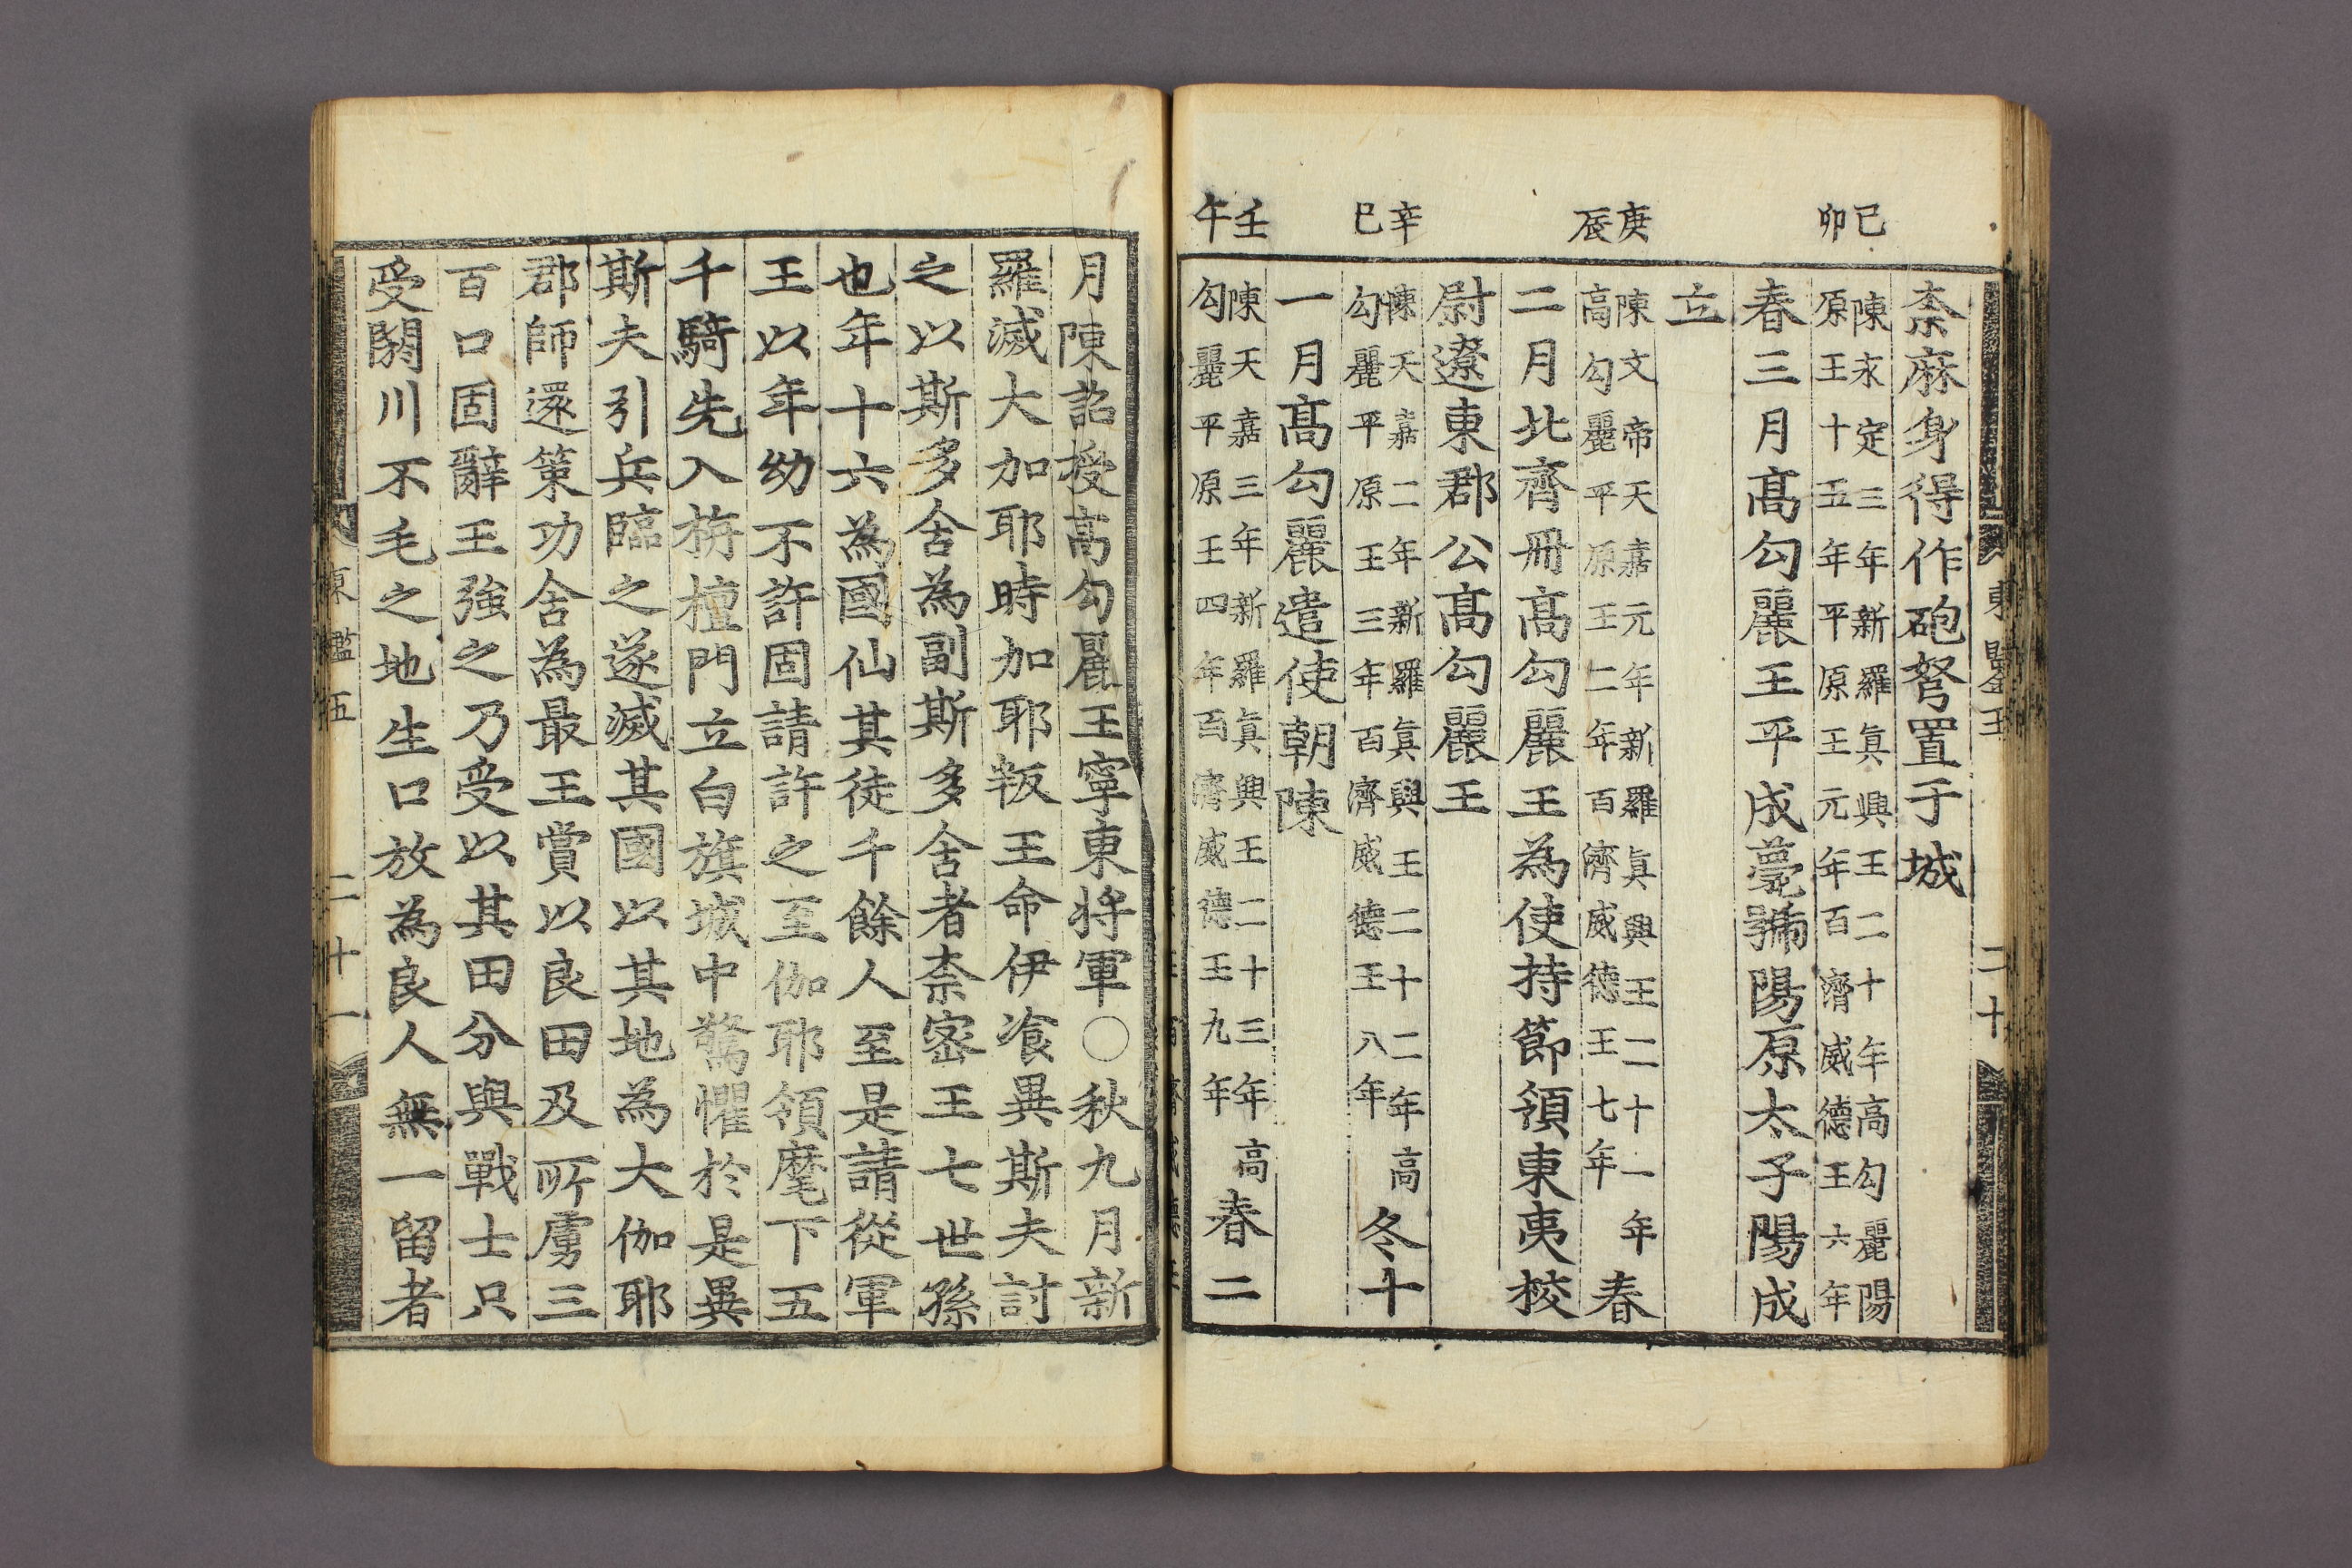 己卯
庚辰
辛巳
壬午
東鑑五
二十
柰麻身得作砲弩置于城
陳永定三年新羅眞興王二十年高勾麗陽
原王十五年平原王元年百濟威德王六年
春三月髙勾麗王平成薨號陽原太子陽成
立
陳文帝天嘉元年新羅眞興王二十一年
高勾麗平原王二年百濟威德王七年
春
二月北齊冊髙勾麗王為使持節領東夷校
尉遼東郡公髙勾麗王
陳天嘉二年新羅眞興王二十二年高
勾麗平原王三年百濟威德王八年
冬十
一月髙勾麗遣使朝陳
陳天嘉三年新羅眞興王二十三年高
勾麗平原王四年百濟威德王九年
春二
月陳詔授高勾麗王寧東將軍○秋九月新
羅滅大加耶時加耶叛王命伊飡異斯夫討
之以斯多舍為副斯多舍者柰密王七世孫
也年十六為國仙其徒千餘人至是請從軍
王以年幼不許固請許之至伽耶領麾下五
千騎先入栴檀門立白旗城中驚懼於是異
斯夫引兵臨之遂滅其國以其地為大伽耶
郡師還策功舍為最王賞以良田及所虜三
百口固辭王強之乃受以其田分與戰士只
受閼川不毛之地生口放為良人無一留者
東鑑五
二十一